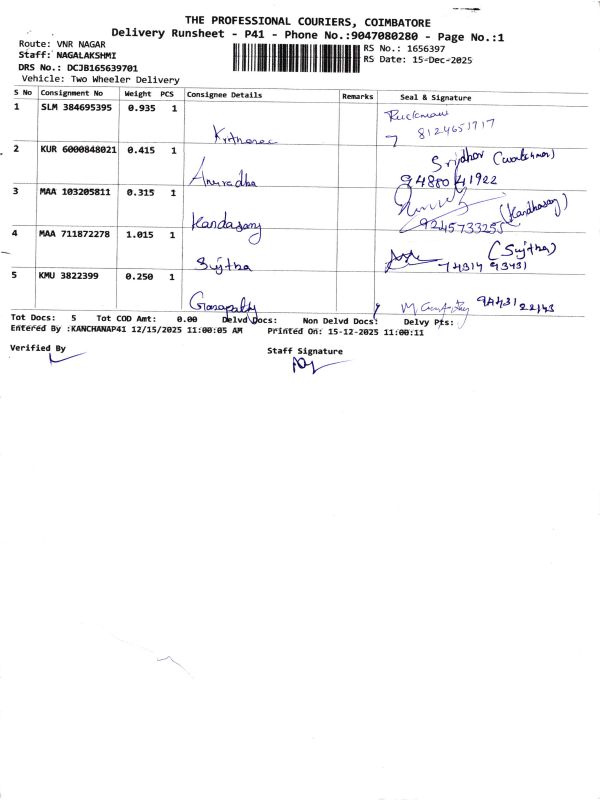 THE PROFESSIONAL COURIERS, COIMBATORE
Delivery Runsheet - P41 - Phone No.:9047080280 - Page No.:1
Route: VNR NAGAR
RS No.: 1656397
Staff: NAGALAKSHMI
RS Date: 15-Dec-2025
DRS No.: DCJB165639701
Vehicle: Two Wheeler Delivery
S No Consignment No Weight PCS Consignee Details Remarks Seal & Signature
1 SLM 384695395 0.935 1
Ruckmani
8124651717
2 KUR 6000848021 0.415 1
Sridhar (watchman)
Anuradha 94880 41922
3 MAA 103205811 0.315 1
(Kandhasamy)
Kandasamy 9245733255
4 MAA 711872278 1.015 1
(Sujitha)
Sujitha 74314 93431
5 KMU 3822399 0.250 1
Ganapathy 94431 22143
Tot Docs: 5 Tot COD Amt: 0.00 Delvd Docs: Non Delvd Docs: Delvy Pts:
Entered By :KANCHANAP41 12/15/2025 11:00:05 AM Printed On: 15-12-2025 11:00:11
Verified By
Staff Signature